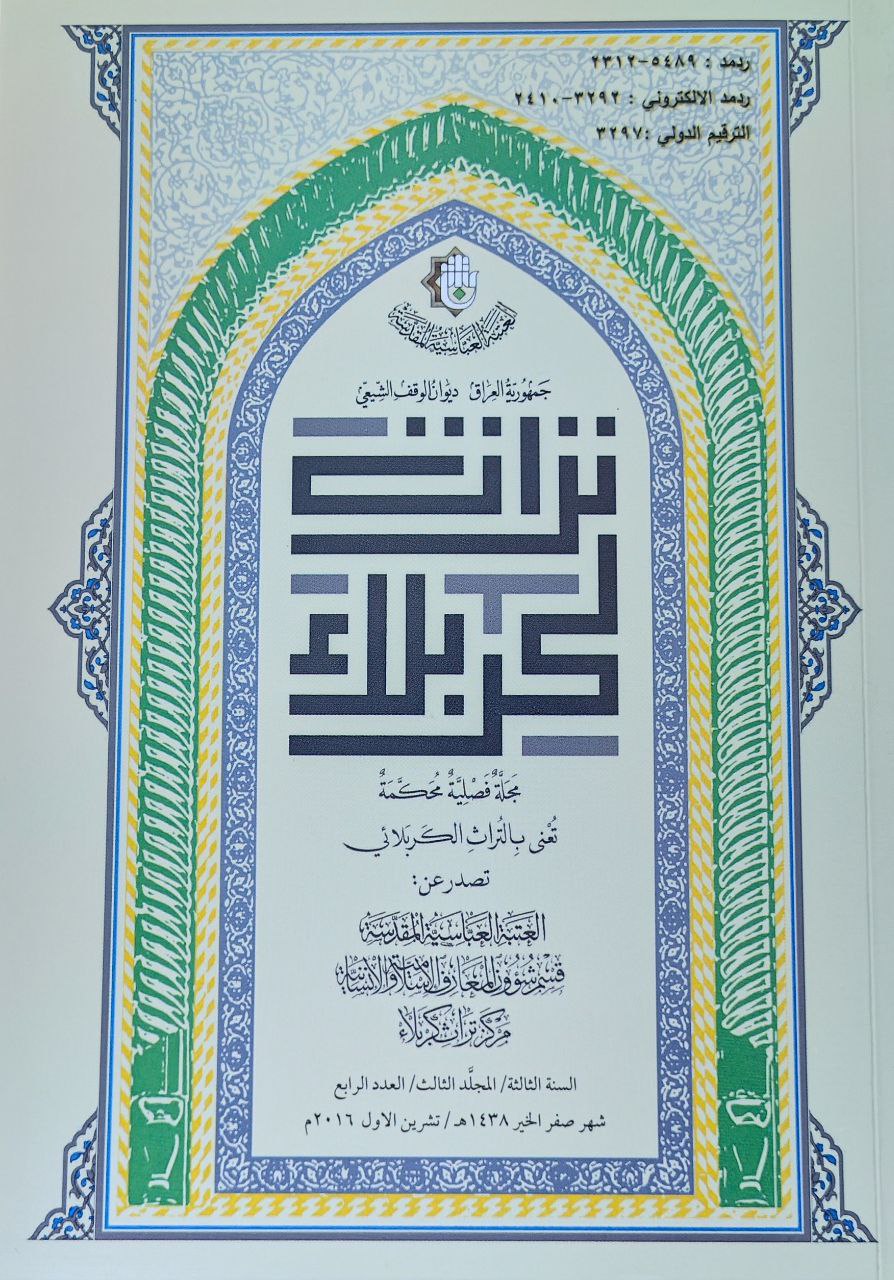 ردمد : ٥٤٨٩-٢٣١٢
ردمد الالكتروني : ٣٢٩٢-٢٤١٠
الترقيم الدولي :٣٢٩٧
العتبة العباسية المقدسة
جَمهوريّة العِراق ديوان الوقف الشيعيّ
تراث
كربلاء
مَجَلَّةٌ فَصْلِيَّةٌ مُحَكَّمَةٌ
تُعْنى بِالتُراثِ الكَربَلائي
تصدر عن:
العَتبَة العَبّاسيَّة المُقدَّسَة
قِسم شُؤُون المَعارِف الإسلاميّة والإنسانيّة
مركز تراث كربلاء
السنة الثالثة/ المجلَّد الثالث/ العدد الرابع
شهر صفر الخير ١٤٣٨هـ/ تشرين الاول ٢٠١٦م